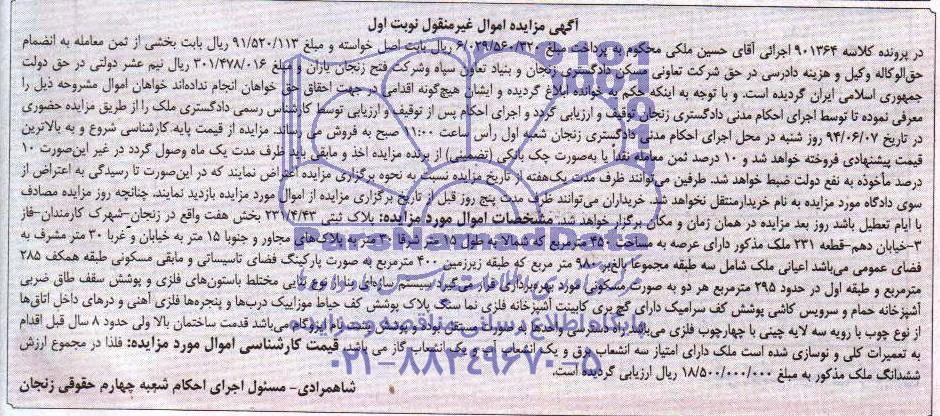 آگهی مزایده اموال غیرمنقول نوبت اول
در پرونده کلاسه ۹۰۱۳۶۴ اجرائی آقای حسین ملکی محکوم به پرداخت مبلغ ۶/۰۲۹/۵۶۰/۳۲۰ ریال بابت اصل خواسته و مبلغ ۹۱/۵۲۰/۱۱۳ ریال بابت بخشی از ثمن معامله به انضمام
حق‌الوکاله وکیل و هزینه دادرسی در حق شرکت تعاونی مسکن دادگستری زنجان و بنیاد تعاون سپاه وشرکت فتح زنجان یاران و مبلغ ۳۰۱/۴۷۸/۰۱۶ ریال نیم عشر دولتی در حق دولت
جمهوری اسلامی ایران گردیده است. و با توجه به اینکه حکم به خوانده ابلاغ گردیده و ایشان هیچ‌گونه اقدامی در جهت احقاق حق خواهان انجام نداده‌اند خواهان اموال مشروحه ذیل را
معرفی نموده تا توسط اجرای احکام مدنی دادگستری زنجان توقیف و ارزیابی گردد و اجرای احکام پس از توقیف و ارزیابی توسط کارشناس رسمی دادگستری ملک را از طریق مزایده حضوری
در تاریخ ۹۴/۰۶/۰۷ روز شنبه در محل اجرای احکام مدنی دادگستری زنجان شعبه اول رأس ساعت ۱۱:۰۰ صبح به فروش می رساند. مزایده از قیمت پایه کارشناسی شروع و به بالاترین
قیمت پیشنهادی فروخته خواهد شد و ۱۰ درصد ثمن معامله نقداً یا به‌صورت چک بانکی (تضمینی) از برنده مزایده اخذ و مابقی باید ظرف مدت یک ماه وصول گردد در غیر این‌صورت ۱۰
درصد مأخوذه به نفع دولت ضبط خواهد شد. طرفین می‌توانند ظرف مدت یک‌هفته از تاریخ مزایده نسبت به نحوه برگزاری مزایده اعتراض نمایند که در این‌صورت تا رسیدگی به اعتراض از
سوی دادگاه مورد مزایده به نام خریدارمنتقل نخواهد شد. خریداران می‌توانند ظرف مدت پنج روز قبل از تاریخ برگزاری مزایده از اموال مورد مزایده بازدید نمایند. چنانچه روز مزایده مصادف
با ایام تعطیل باشد روز بعد مزایده در همان زمان و مکان برگزار خواهد شد. مشخصات اموال مورد مزایده: پلاک ثبتی ۲۳۱/۴/۴۳ بخش هفت واقع در زنجان-شهرک کارمندان-فاز
۳-خیابان دهم-قطعه ۲۳۱ ملک مذکور دارای عرصه به مساحت ۴۵۰ مترمربع که شمالا به طول ۱۵ متر شرقا ۳۰ متر به پلاک‌های مجاور و جنوبا ۱۵ متر به خیابان و غربا ۳۰ متر مشرف به
فضای عمومی می‌باشد اعیانی ملک شامل سه طبقه مجموعا بالغ‌بر ۹۸۰ متر مربع که طبقه زیرزمین ۴۰۰ مترمربع به صورت پارکینگ فضای تاسیساتی و مابقی مسکونی طبقه همکف ۲۸۵
مترمربع و طبقه اول در حدود ۲۹۵ مترمربع هر دو به صورت مسکونی مورد بهره‌برداری قرار می‌گیرد. سیستم سازه‌ای بنا از نوع بنایی مختلط باستون‌های فلزی و پوشش سقف طاق ضربی
آشپزخانه حمام و سرویس کاشی پوشش کف سرامیک دارای گچ‌بری کابینت آشپزخانه فلزی نما سنگ پلاک پوشش کف حیاط موزاییک درب‌ها و پنجره‌ها فلزی آهنی و درهای داخل اتاق‌ها
از نوع چوب با رویه سه لایه چینی با چهارچوب فلزی می‌باشد. واحدها به صورت مستقل بوده و پوشش بام ایزوگام می‌باشد قدمت ساختمان بالا ولی حدود ۸ سال قبل اقدام
به تعمیرات کلی و نوسازی شده است ملک دارای امتیاز سه انشعاب برق و یک انشعاب آب و یک انشعاب گاز می باشد. قیمت کارشناسی اموال مورد مزایده: فلذا در مجموع ارزش
ششدانگ ملک مذکور به مبلغ ۱۸/۵۰۰/۰۰۰/۰۰۰ ریال ارزیابی گردیده است.
شاهمرادی- مسئول اجرای احکام شعبه چهارم حقوقی زنجان
ParsNamadData
پایگاه اطلاع رسانی مناقصه و مزایده
۰۲۱-۸۸۳۴۹۶۷۰-۵